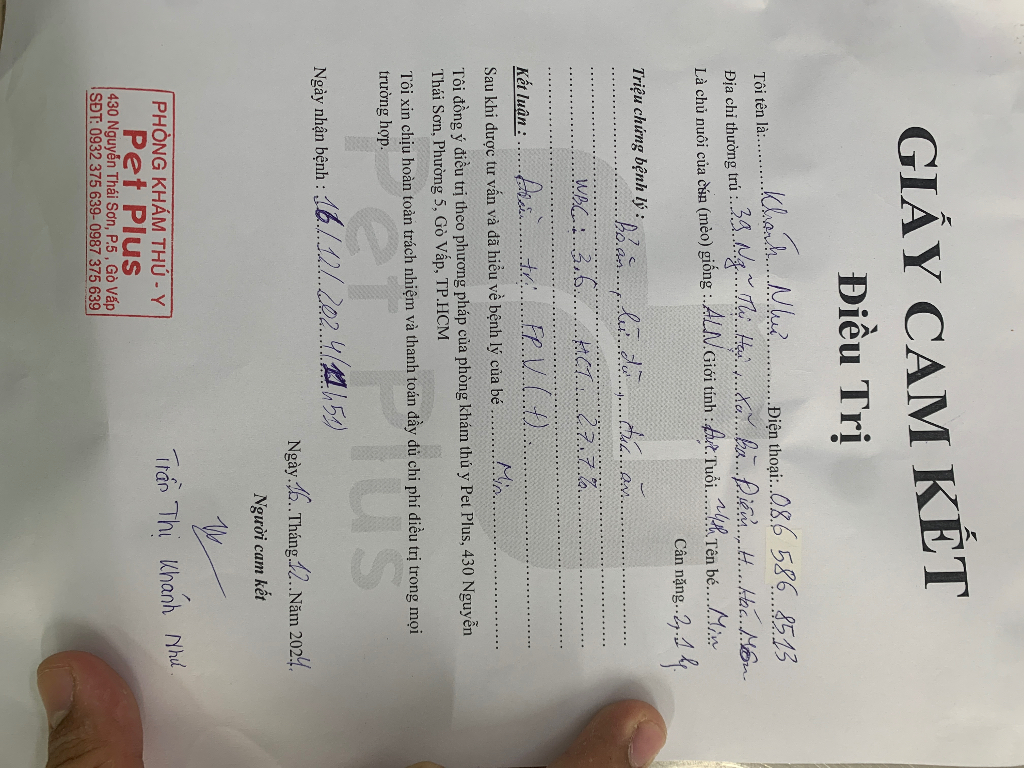 GIẤY CAM KẾT
Điều Trị
Tôi tên là:..........Khánh Như..........Điện thoại:..086 586 8513
Địa chỉ thường trú:..39 Ng~ Thị Huê, xã Bà Điểm, H. Hóc Môn
Là chủ nuôi của chó (mèo) giống :..ALN.Giới tính :Đực Tuổi...Tên bé...Min
Cân nặng.2,1 kg
Triệu chứng bệnh lý : .......................
WBC : 3.6. HCT...27.7%.
Kết luận : ......Điều trị FPV (+)...
Sau khi được tư vấn và đã hiểu về bệnh lý của bé ............Min...............
Tôi đồng ý điều trị theo phương pháp của phòng khám thú y Pet Plus, 430 Nguyễn
Thái Sơn, Phường 5, Gò Vấp, TP.HCM
Tôi xin chịu hoàn toàn trách nhiệm và thanh toán đầy đủ chi phí điều trị trong mọi
trường hợp.
Ngày nhận bệnh : 16/12/2024
Ngày.16...Tháng.12...Năm 2024.
Người cam kết
Trần Thị Khánh Như
PHÒNG KHÁM THÚ - Y
Pet Plus
430 Nguyễn Thái Sơn, P.5 , Gò Vấp
SĐT: 0932 375 639- 0987 375 639
Pet Plus